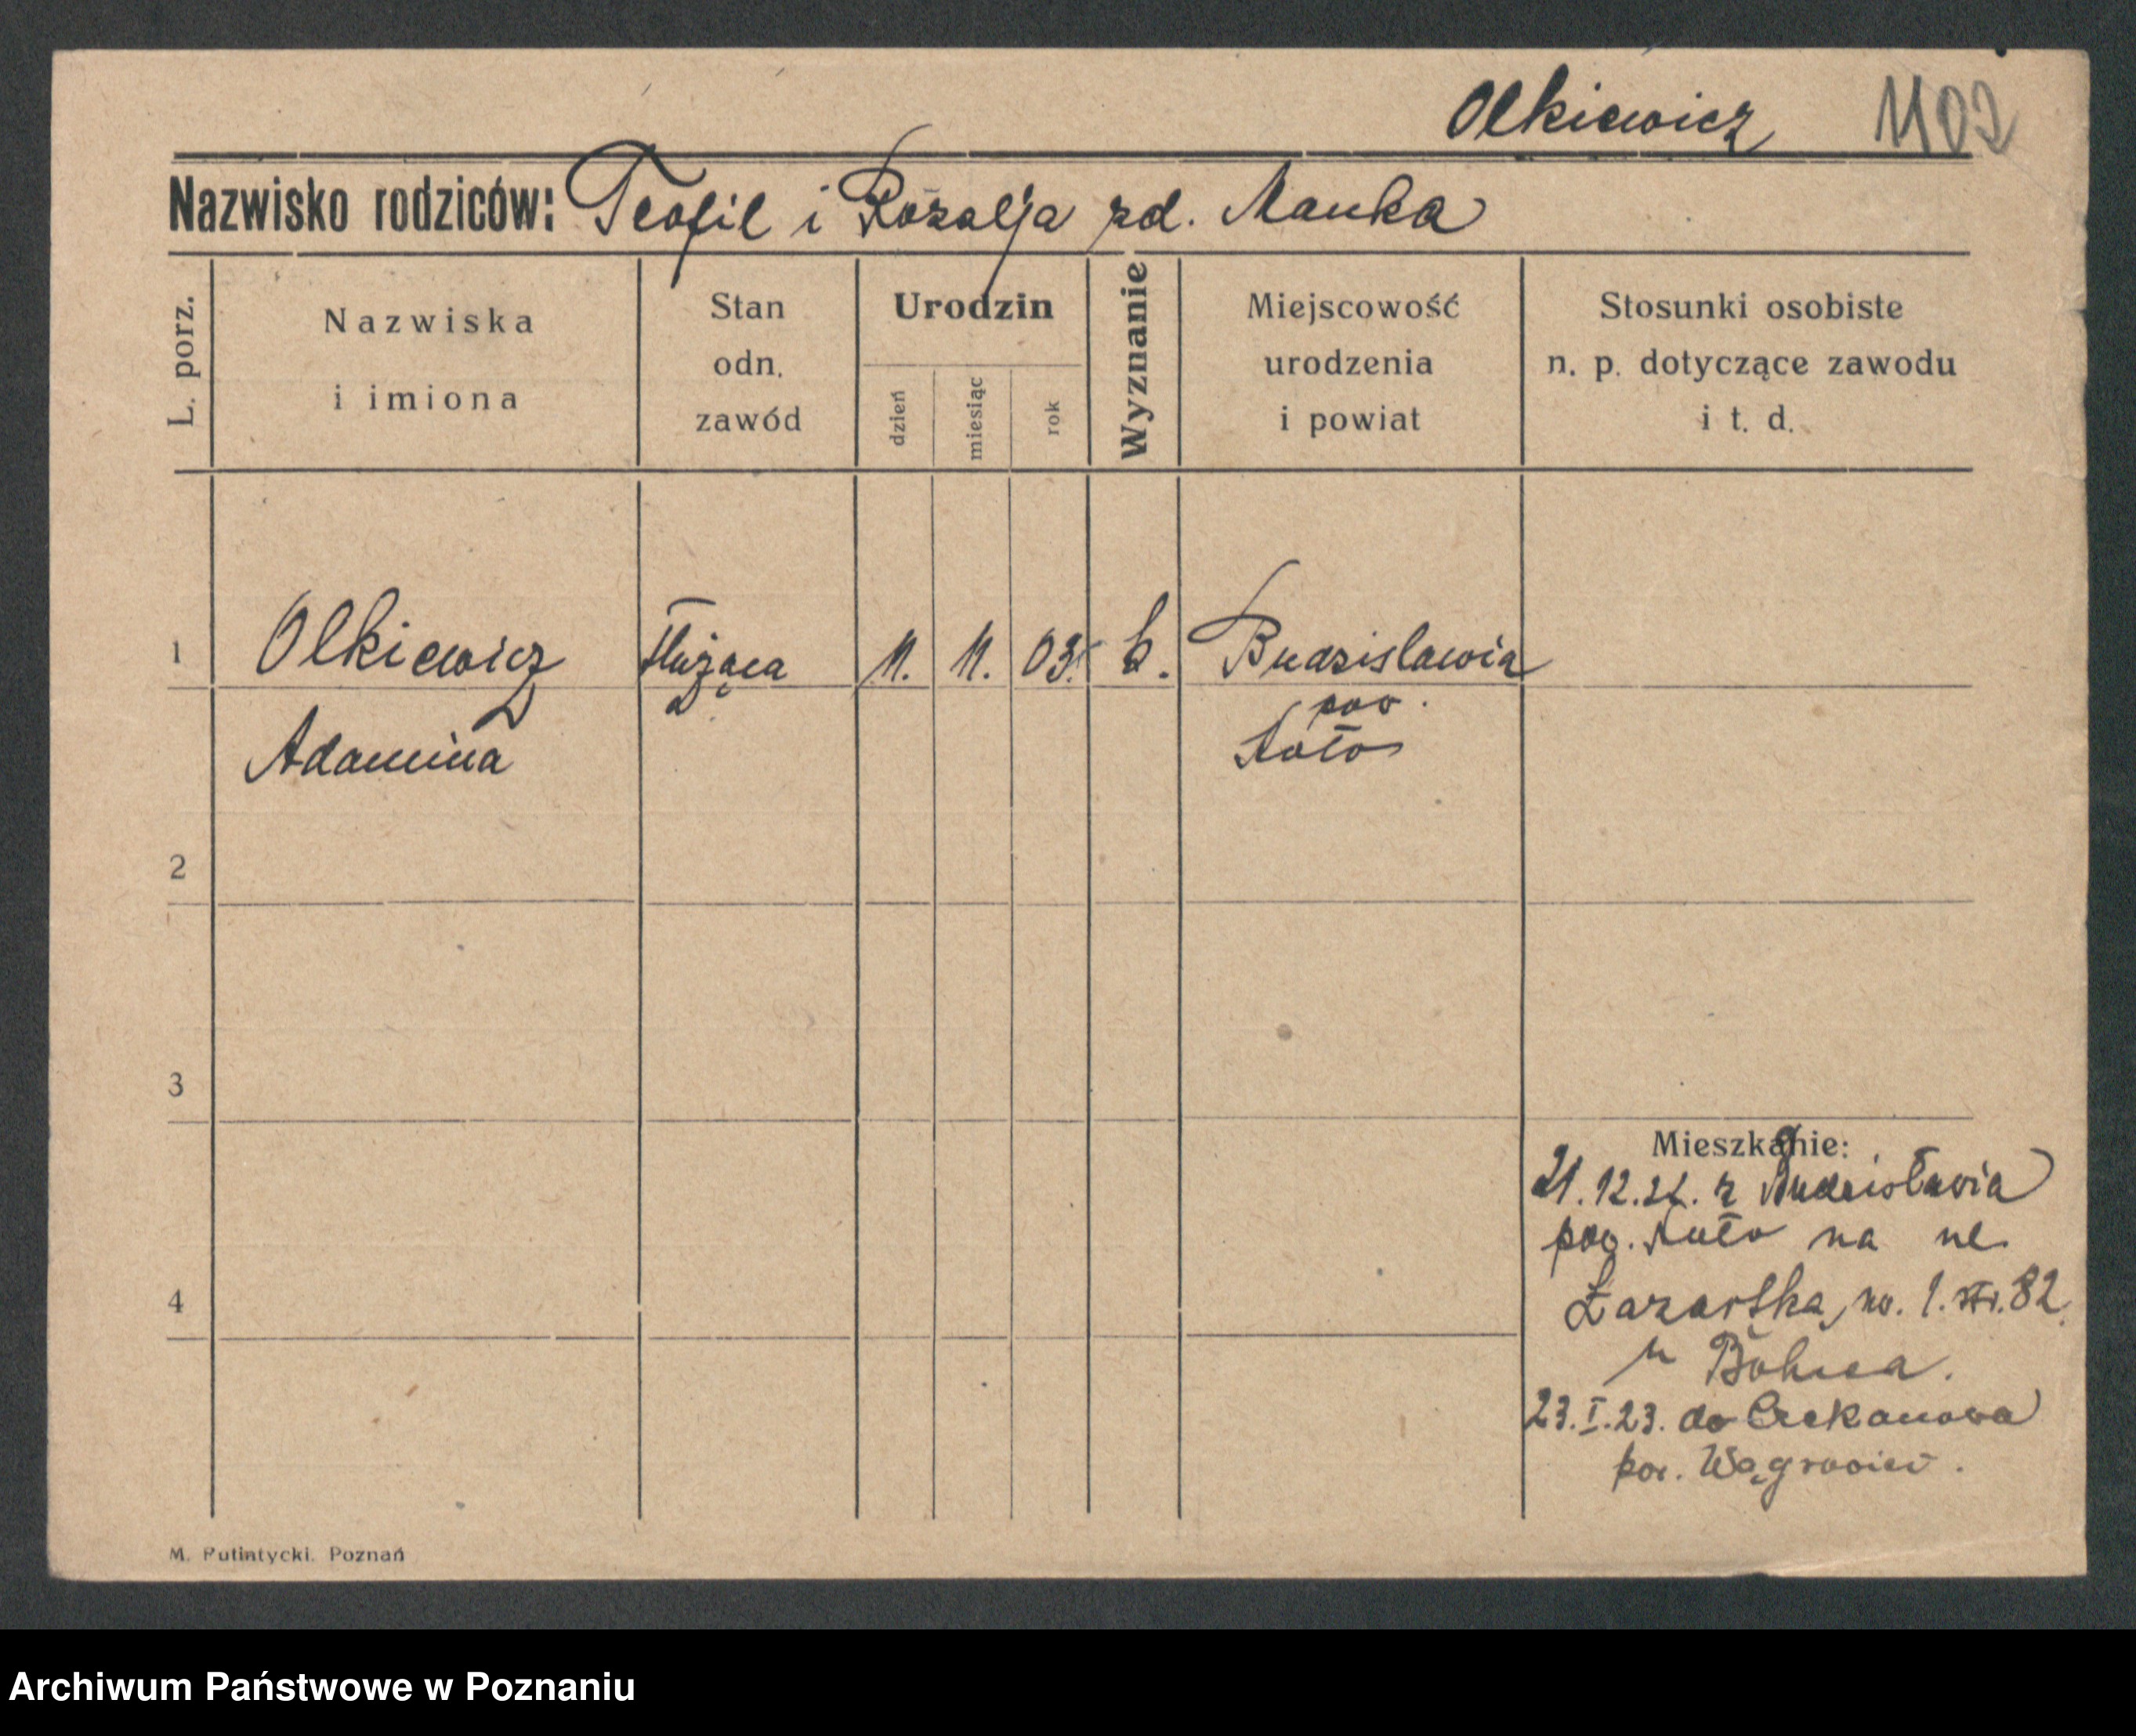 Olkiewicz 1102
Nazwisko rodziców: Teofil i Rozalja zd. Mańka
L. porz.
Nazwiska
i imiona
Stan
odn.
zawód
Urodzin
dzień
miesiąc
rok
Wyznanie
Miejscowość
urodzenia
i powiat
Stosunki osobiste
n. p. dotyczące zawodu
i t. d.
1 Olkiewicz służąca 11. 11. 03. Budzislawia
pow.
Koło
Adamina
2
3
4
Mieszkanie:
21.12.22. z Budzisławia
pow. Koło na ul.
Łazarska, no. 1. str. 82.
u
23.I.23. do Czekanowa
pow. Wągrowiec.
M. Putiatycki. Poznań
Archiwum Państwowe w Poznaniu